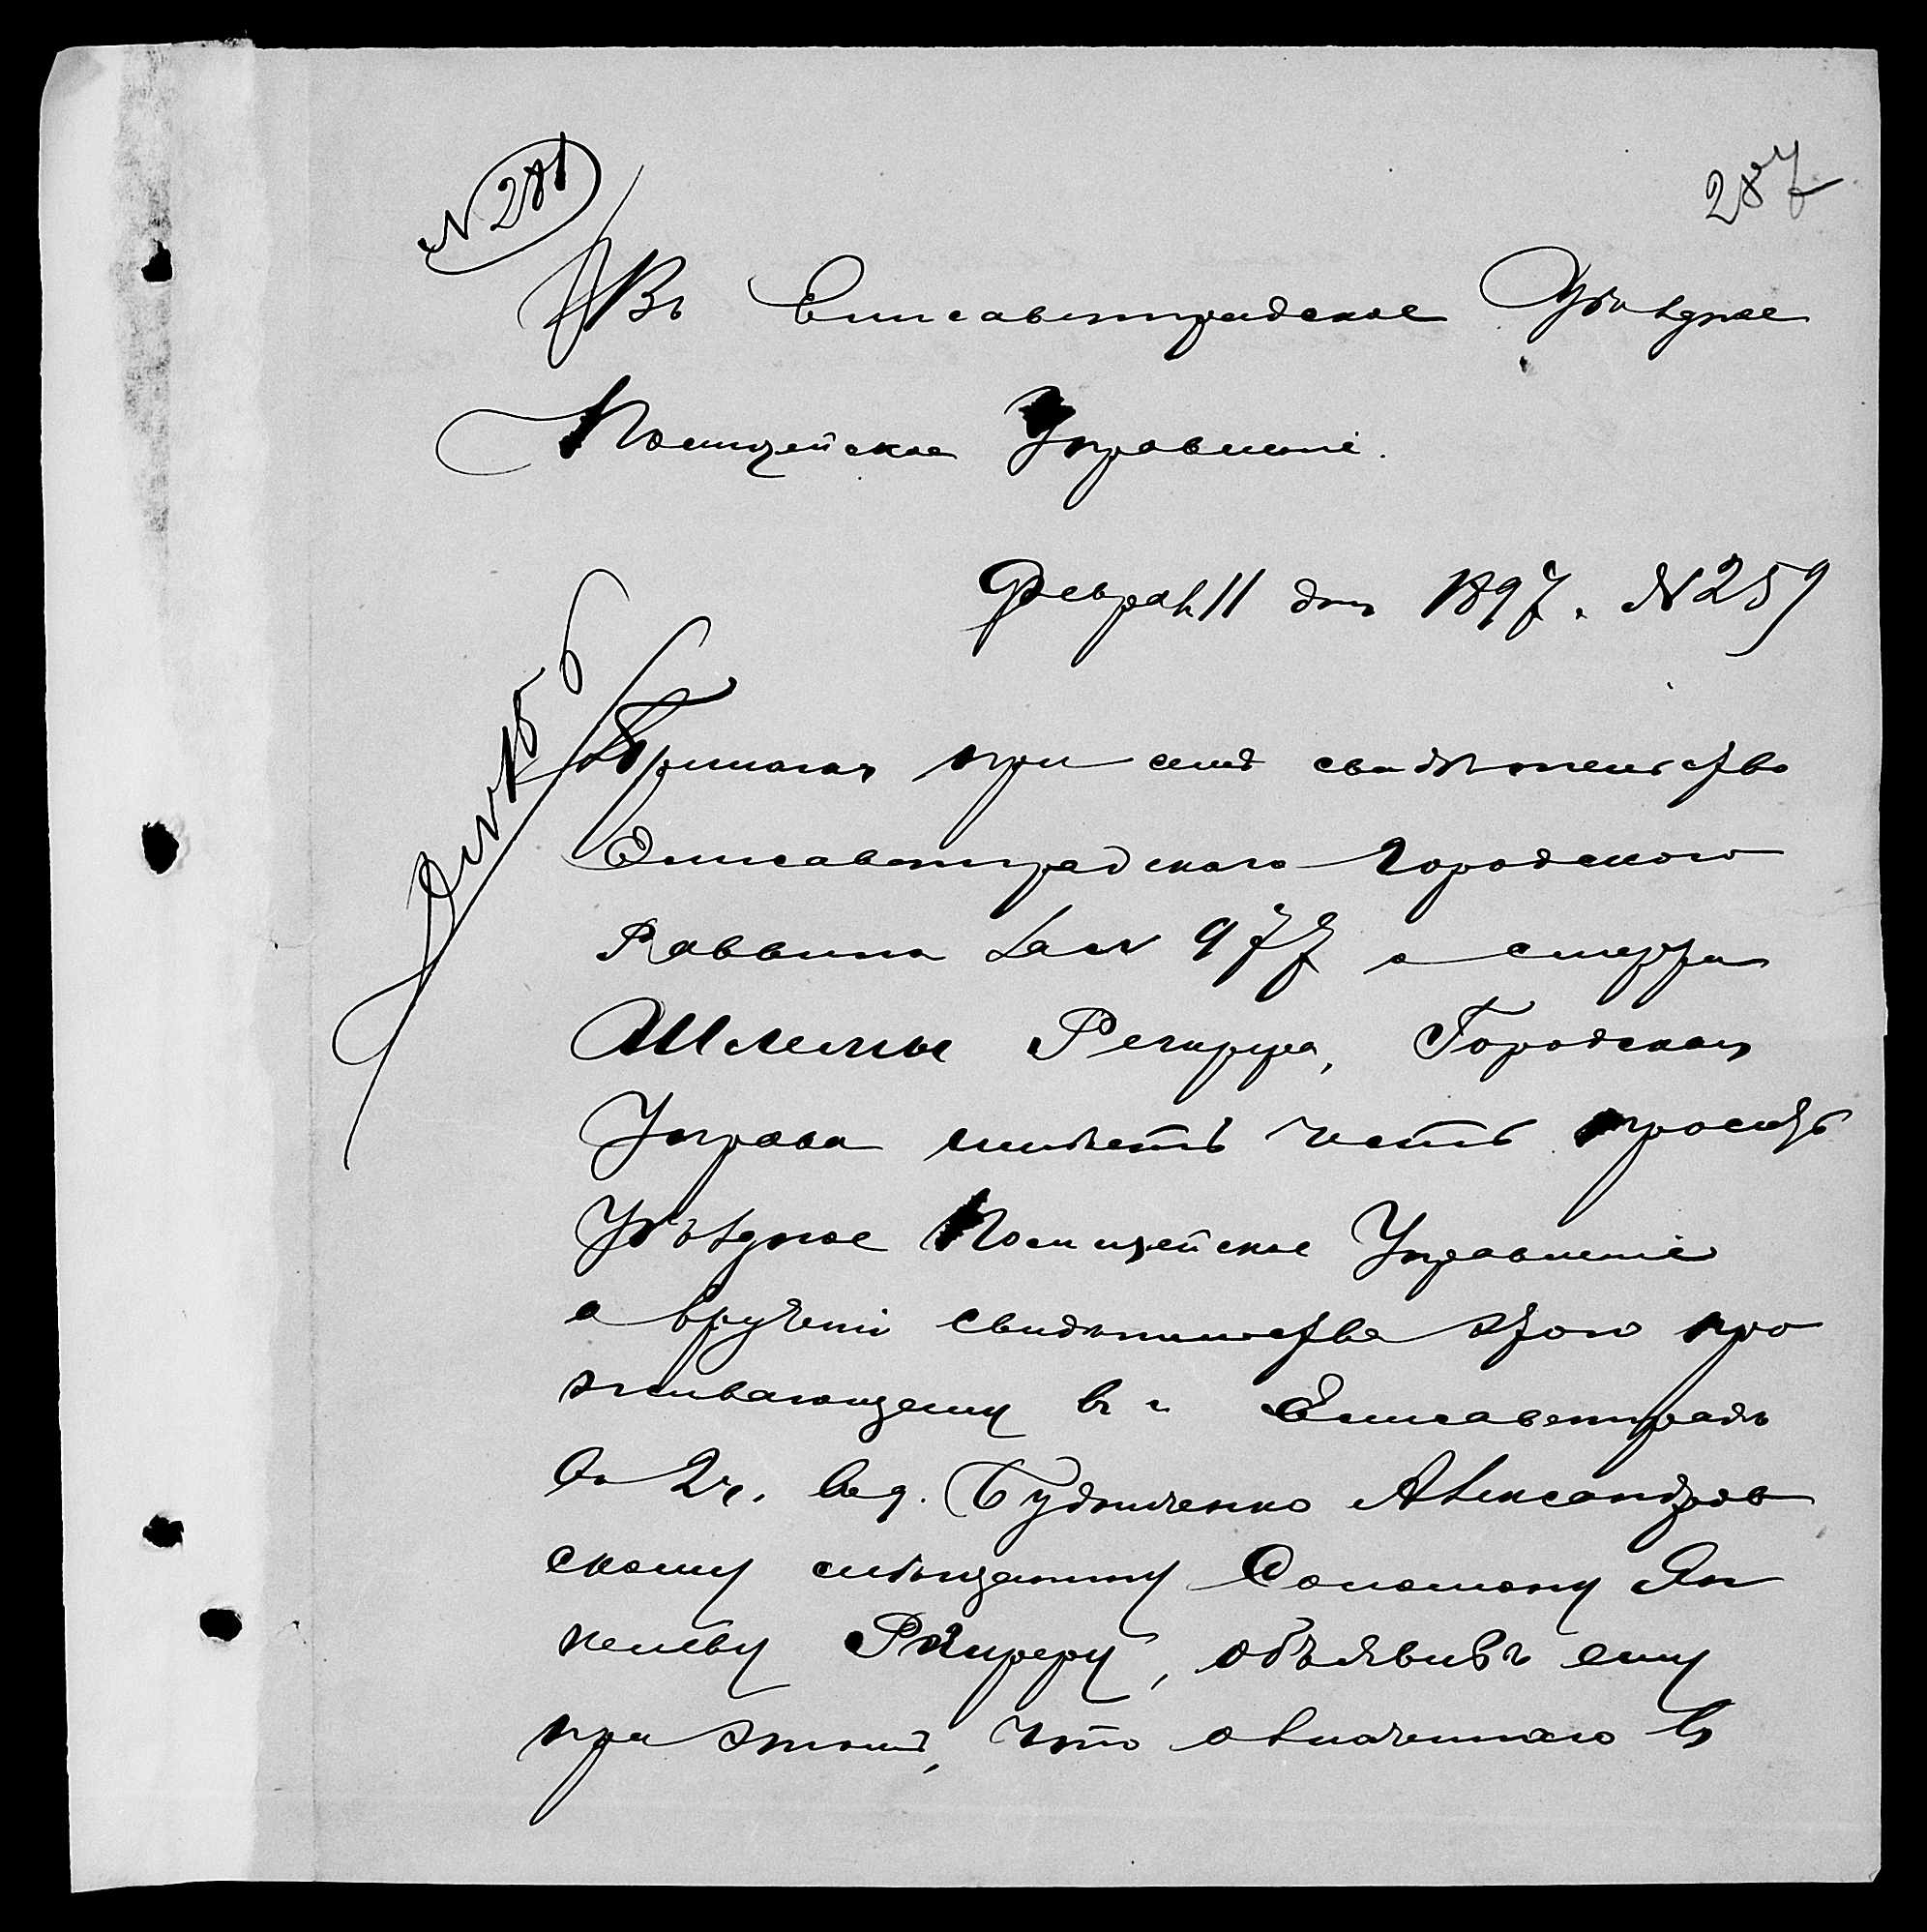 N 281
287
Въ Елисаветградское Уѣздное
Полицейское Управленіе.
Февраля 11 дня 1897. N 259
Прилагая при семъ свидѣтельство
Елисаветградскаго Городского
Раввина за N 977 о смерти
Шлемы Рейфера, Городская
Управа имѣетъ честь просить
Уѣздное Полицейское Управленіе
о врученіи свидѣтельства этого про
живающему въ г. Елисаветградѣ
во 2 ч. въ д. Будниченко Александров
скому мѣщанину Соломону Ян
келеву Рейферу, объявивъ ему
при этомъ, что означеннаго въ